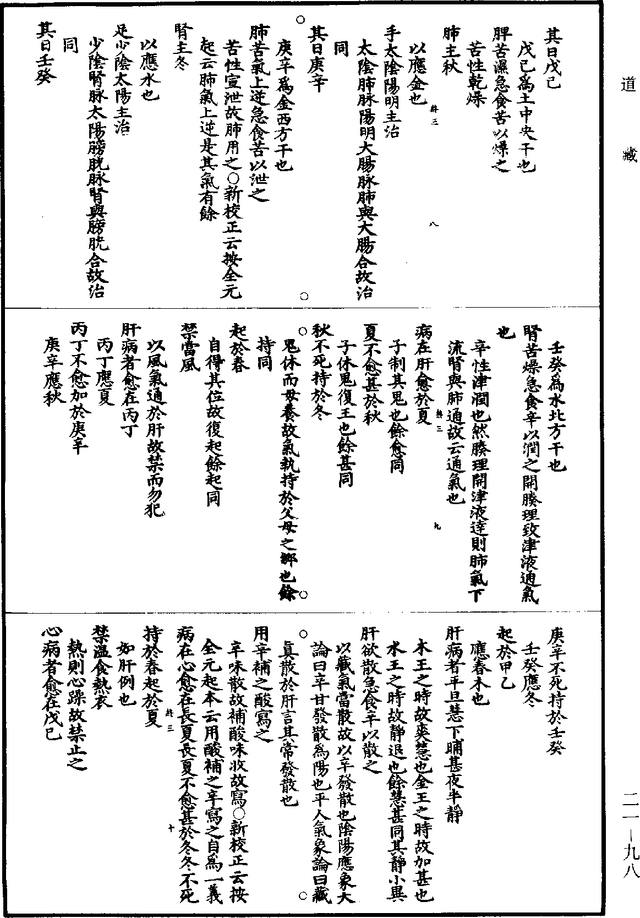 道藏
其日戊己
戊己爲土中央干也
脾苦濕急食苦以燥之
苦性乾燥
肺主秋
以應金也
手太陰陽明主治
太陰肺脉陽明大腸脉肺與大腸合故治
同
其日庚辛
庚辛爲金西方干也
肺苦氣上逆急食苦以泄之
苦性宣泄故肺用之○新校正云按全元
起云肺氣上逆是其氣有餘
腎主冬
以應水也
足少陰太陽主治
少陰腎脉太陽膀胱脉腎與膀胱合故治
同
其日壬癸
壬癸爲水北方干也
腎苦燥急食辛以潤之開腠理致津液通氣
也
辛性津潤也然腠理開津液達則肺氣下
流腎與肺通故云通氣也
病在肝愈於夏
子制其鬼也餘愈同
夏不愈甚於秋
子休鬼復王也餘甚同
秋不死持於冬
鬼休而母養故氣執持於父母之鄉也餘
持同
起於春
自得其位故復起餘起同
禁當風
以風氣通於肝故禁而勿犯
肝病者愈在丙丁
丙丁應夏
丙丁不愈加於庚辛
庚辛應秋
庚辛不死持於壬癸
壬癸應冬
起於甲乙
應春木也
肝病者平旦慧下晡甚夜半靜
木王之時故爽慧也金王之時故加甚也
水王之時故靜退也餘慧甚同其靜小異
肝欲散急食辛以散之
以藏氣當散故以辛發散也陰陽應象大
論曰辛甘發散爲陽也平人氣象論曰藏
真散於肝言其常發散也
用辛補之酸寫之
辛味散故補酸味收故寫○新校正云按
全元起本云用酸補之辛寫之自爲一義
病在心愈在長夏長夏不愈甚於冬冬不死
持於春起於夏
如肝例也
禁溫食熱衣
熱則心躁故禁止之
心病者愈在戊己
二一—九八